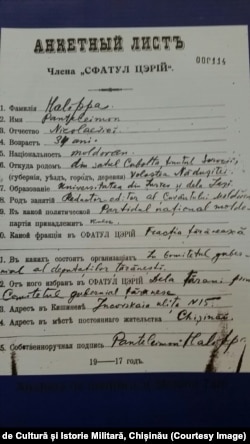 АНКЕТНЫЙ ЛИСТЪ
Члена „СФАТУЛ ЦЭРІЙ“.
1. Фамилія Halippa
2. Имя Pantelimon
3. Отчество Nicolaevici
4. Возрастъ 34 ani.
5. Національность moldovan
6. Откуда родомъ din satul Cubolta, ținutul Sorocii
(губернія, уѣздъ, городъ, деревня) Volostea Nădușitei
7. Образованіе Universitatea din Iurev și dela Iași.
8. Родъ занятій Redactor-editor al Cuvântului Moldovenesc
9. Въ какой политической Partidul național moldov.
партіи принадлежитъ
0. Какой фракціи въ СФАТУЛ ЦЭРІЙ Fracția țărănească
1. Въ какихъ состоитъ организаціяхъ In Comitetul guber-
nial al deputaților țărănești.
2. Отъ кого избранъ въ СФАТУЛ ЦЭРІЙ Dela țărani prin
Comitetul gubernial țărănesc
3. Адресъ въ Кишиневѣ ulița N 15
4. Адресъ въ мѣстѣ постояннаго жительства Chișinău
5. Собственноручная подпись Pantelimon Halippa
19—17 годъ.
de Cultură și Istorie Militară, Chișinău (Courtesy Image)